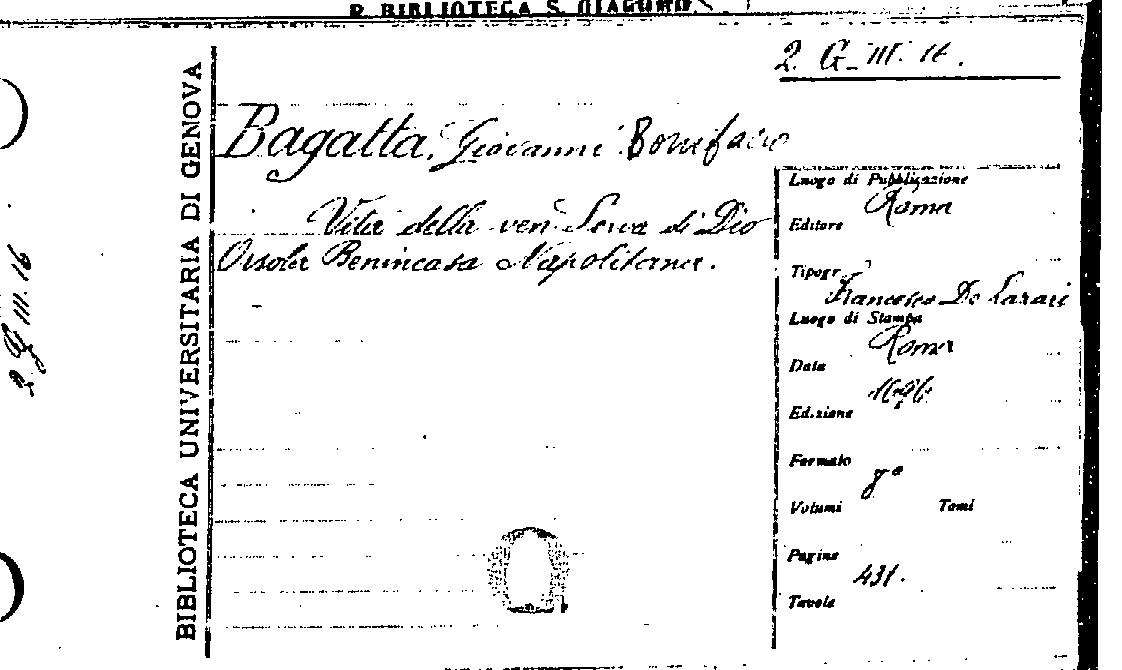 2. G. III. 16.
BIBLIOTECA UNIVERSITARIA DI GENOVA
2 G III. 16
Bagatta, Giovanni Bonifacio
Vita della ven. Serva di Dio
Orsola Benincasa Napolitana.
Luogo di Pubblicazione
Roma
Editore
Tipogr.
Francesco De Lazari
Luogo di Stampa
Roma
Data
1696
Edizione
Formato
8º
Volumi Tomi
Pagine
431.
Tavole